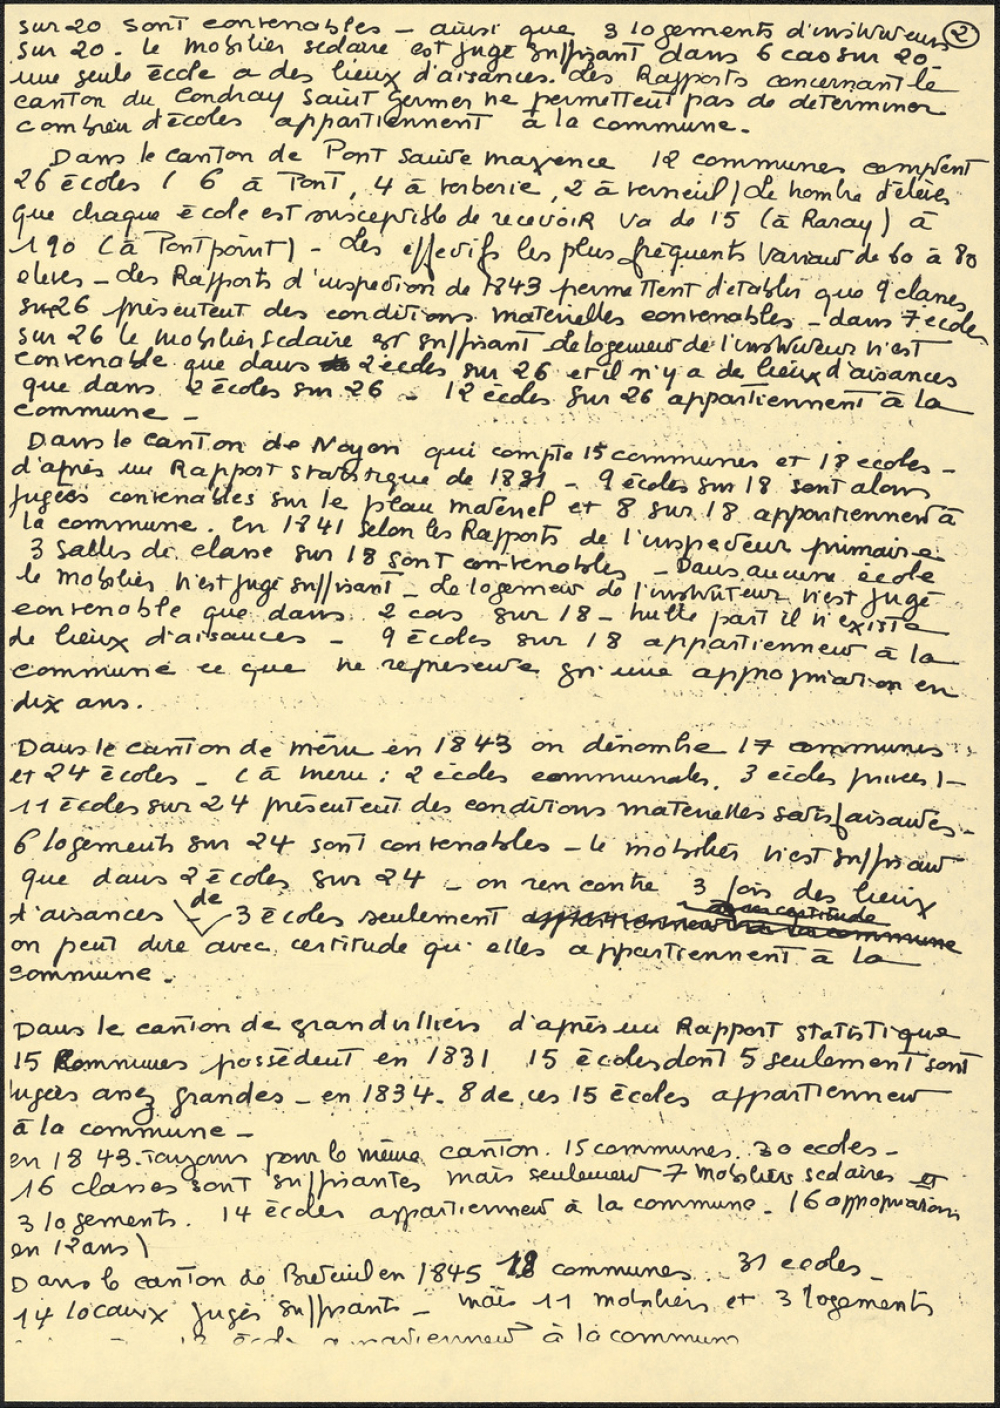 sur 20 sont convenables - ainsi que 3 logements d'instituteurs ②
sur 20 - le mobilier scolaire est jugé suffisant dans 6 cas sur 20 -
une seule école a des lieux d'aisances. Les Rapports concernant le
canton du Coudray Saint Germer ne permettent pas de déterminer
combien d'écoles appartiennent à la commune -
Dans le canton de Pont Sainte Maxence 12 communes comptent
26 écoles ( 6 à Pont, 4 à verberie, 2 à verneuil ) Le nombre d'élèves
que chaque école est susceptible de recevoir va de 15 (à Raray) à
190 (à Pontpoint) - Les effectifs les plus fréquents variant de 60 à 80
eleves - Les Rapports d'inspection de 1843 permettent d'etablir que 9 classes
sur 26 présentent des conditions matérielles convenables - dans 7 ecoles
sur 26 le mobilier scolaire est suffisant - le logement de l'instituteur n'est
convenable que dans 2 écoles sur 26 et il n'y a de lieux d'aisances
que dans 2 écoles sur 26 - 12 écoles sur 26 appartiennent à la
commune -
Dans le canton de Noyon qui compte 15 communes et 18 ecoles -
d'après un Rapport statistique de 1831 - 9 écoles sur 18 sont alors
jugées convenables sur le plan matériel et 8 sur 18 appartiennent à
la commune. En 1841 selon les Rapports de l'inspecteur primaire
3 salles de classe sur 18 sont convenables - Dans aucune école
le mobilier n'est jugé suffisant - Le logement de l'instituteur n'est jugé
convenable que dans 2 cas sur 18 - nulle part il n'existe
de lieux d'aisances - 9 écoles sur 18 appartiennent à la
commune ce que ne represente qu'une appropriation en
dix ans.
Dans le canton de méru en 1843 on dénombre 17 communes
et 24 écoles - ( à meru : 2 écoles communales, 3 ecoles privees ) -
11 écoles sur 24 présentent des conditions materielles satisfaisantes -
6 logements sur 24 sont convenables - le mobilier n'est suffisant
que dans 2 écoles sur 24 - on rencontre 3 fois des lieux
d'aisances - de 3 écoles seulement appartiennent à la commune
on peut dire avec certitude qu'elles appartiennent à la
commune.
Dans le canton de grandvilliers d'après un Rapport statistique
15 Communes possèdent en 1831 15 écoles dont 5 seulement sont
jugées assez grandes - en 1834 - 8 de ces 15 écoles appartiennent
à la commune -
en 1843. Toujours pour le même canton. 15 communes. 30 ecoles -
16 classes sont suffisantes mais seulement 7 mobiliers scolaires et
3 logements. 14 écoles appartiennent à la commune - (6 appropriations
en 12 ans)
Dans le canton de Breteuil en 1845 18 communes. 31 ecoles -
14 locaux jugés suffisants - mais 11 mobiliers et 3 logements
appartiennent à la commune